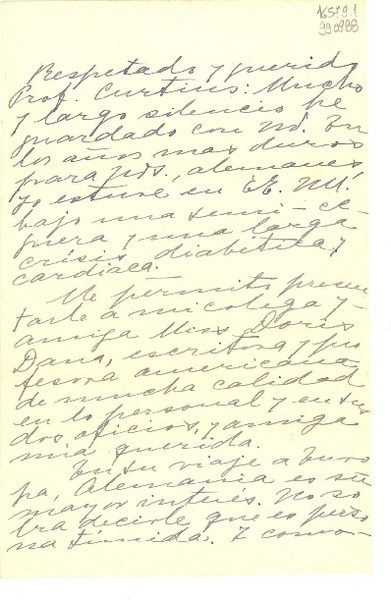 1657 9.1
990988
Respetado y querido
Prof. Curtius: Mucho
y largo silencio he
guardado con Ud. En
los años mas duros
para Uds., alemanes,
yo estuve en EE. UU.
bajo una semi-ce
guera y una larga
crisis diabética y
cardiaca.
Me permito presen
tarle a mi colega y
amiga Miss Doris
Dana, escritora y pro
fesora americana
de mucha calidad
en lo personal y en sus
dos oficios, y amiga
mia querida.
En su viaje a Euro
pa, Alemania es su
mayor interés. No so
bra decirle que es perso
na tímida. Y como-